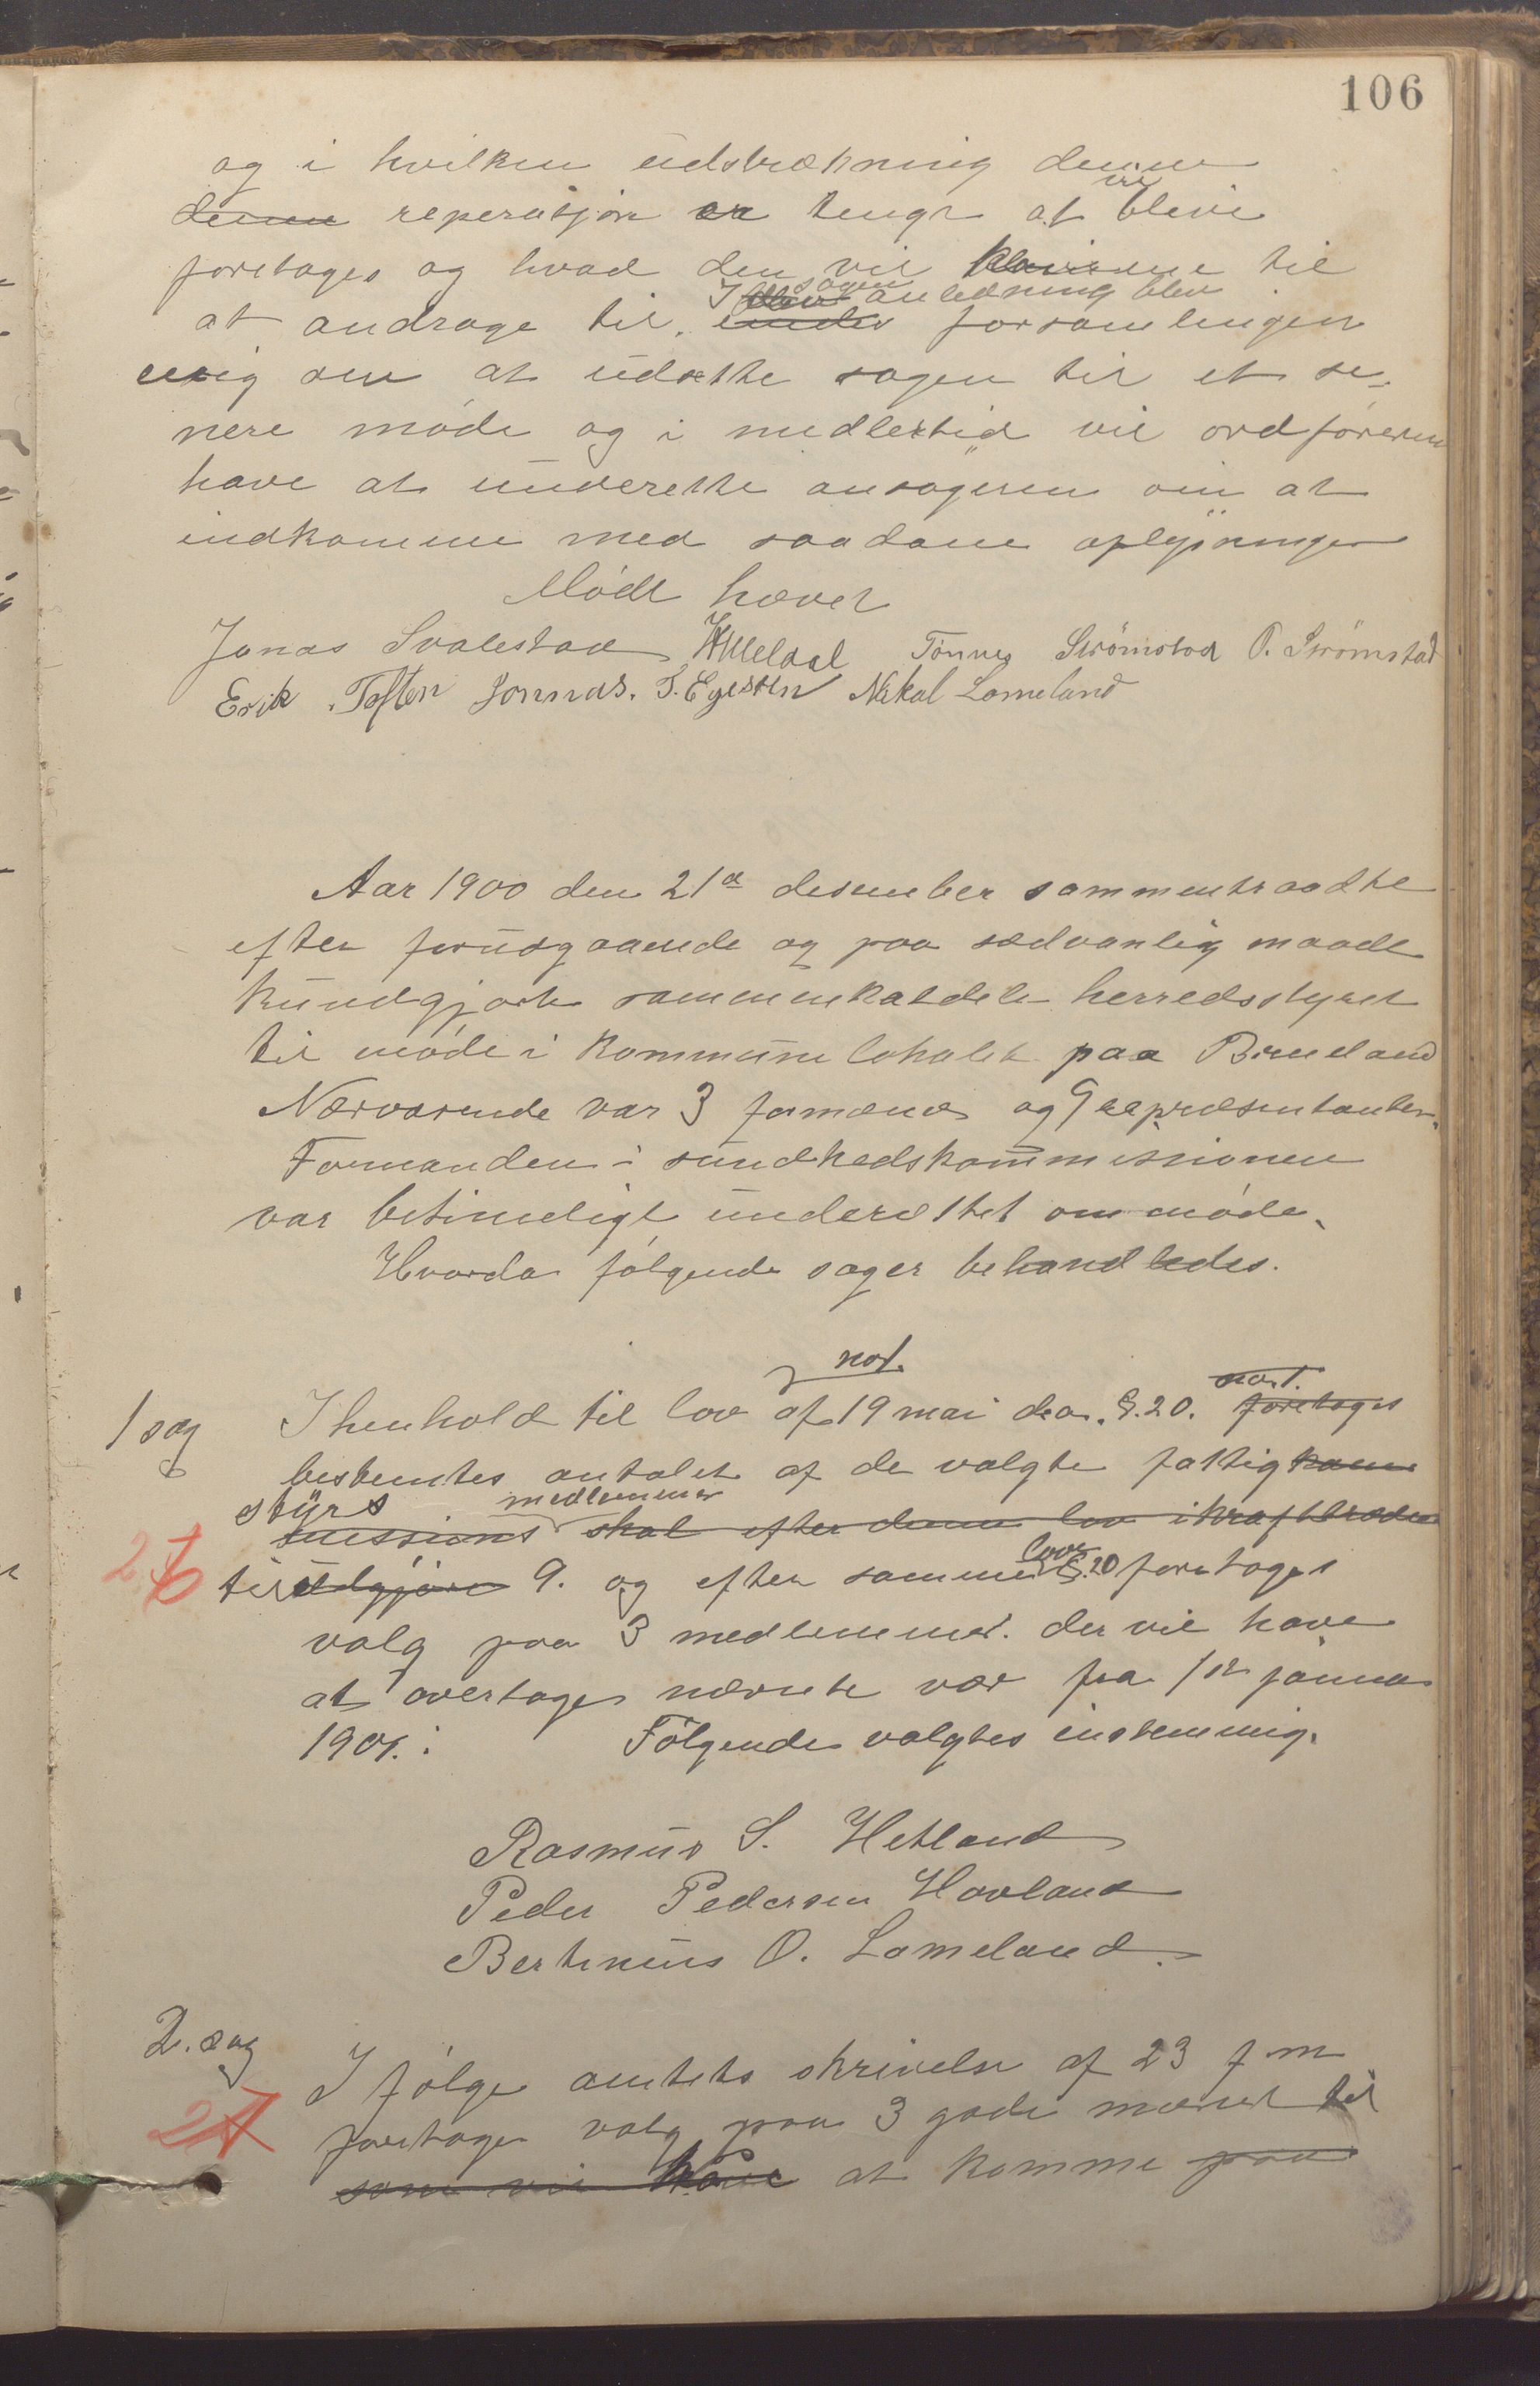 106
og i hvilken udstrækning denne
denne reperasjon er tengt at vil blive
foretages og hvad den vil komme til
at andrage til. I sagen anledning blev forsamlingen
enig om at udsætte sagen til et se-
nere møde og i medlertid vil ordføreren
have at underette ansøgeren om at
indkomme med saadane oplysninger
Møde hævet
Jonas Svalestad Tönnes Strömstad O. Strömstad
Erik Toften Jonnas. T. Egesten Nikal Lomeland
Aar 1900 den 21de desember sammentraadte
efter forudgaaende og paa sædvanlig maade
kundgjort sammenkaldelse herredsstyret
til møde i kommunelokalet paa Birneland
Nærværende var 3 formænd og 9 repræsentanter.
Formanden i sundhedskommissionen
var betimeligt underættet om møde.
Hvorda følgende sager behandledes.
1 sag I henhold til lov af 19 mai d.a. §.20. foretages
bestemtes antalet af de valgte fattigkom
styrs medlemmer
missions skal efter denne lov ikrafttræden
26 til udgjøre 9. og efter samme lovs §.20 foretages
valg paa 3 medlemmer. der vil have
at overtage nævnte vær fra 1ste januar
1901. Følgende valgtes enstemmig.
Rasmus S. Hetland
Peder Pedersen Hovland
Bertinius O. Lomeland.
2. sag I følge amtets skrivelse af 23 f m
27 foretages valg paa 3 gode mænd til
som vil have at komme paa